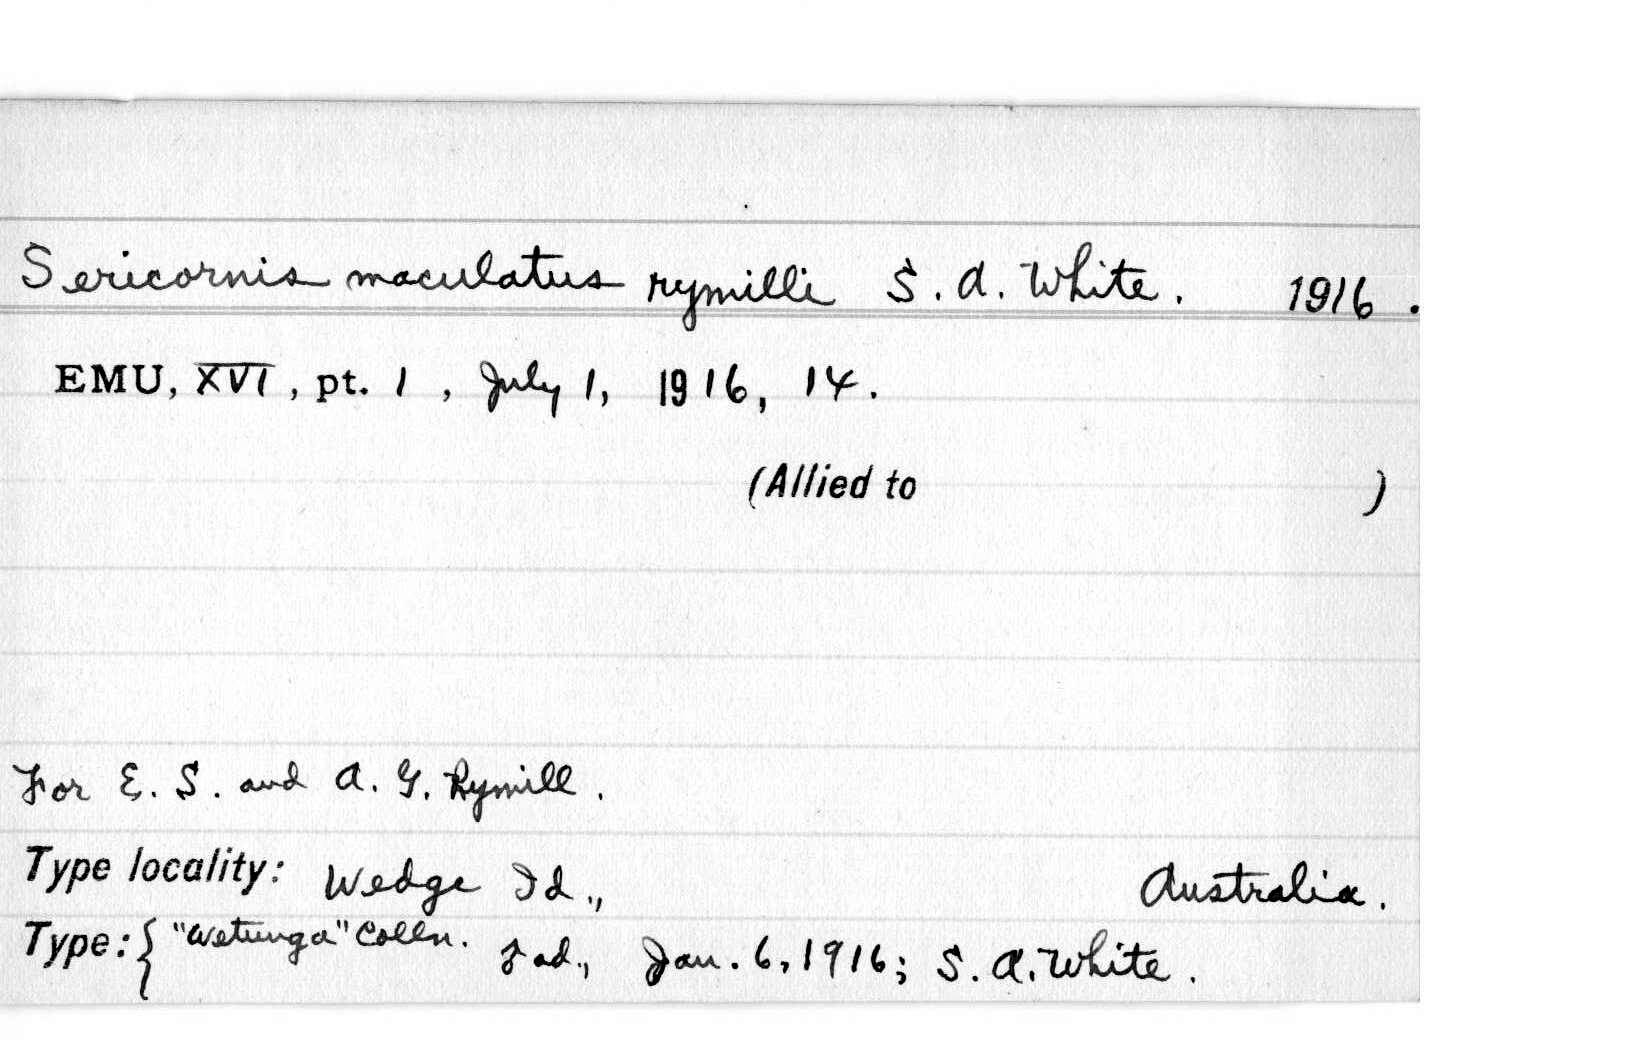 Sericornis maculatus rymilli S. A. White. 1916.
EMU, XVI, pt. 1, July 1, 1916, 14.
(Allied to )
For E. S. and A. G. Rymill.
Type locality: Wedge Id., Australia.
Type: { "Wetunga" Colln. ♀ ad., Jan. 6, 1916; S. A. White.